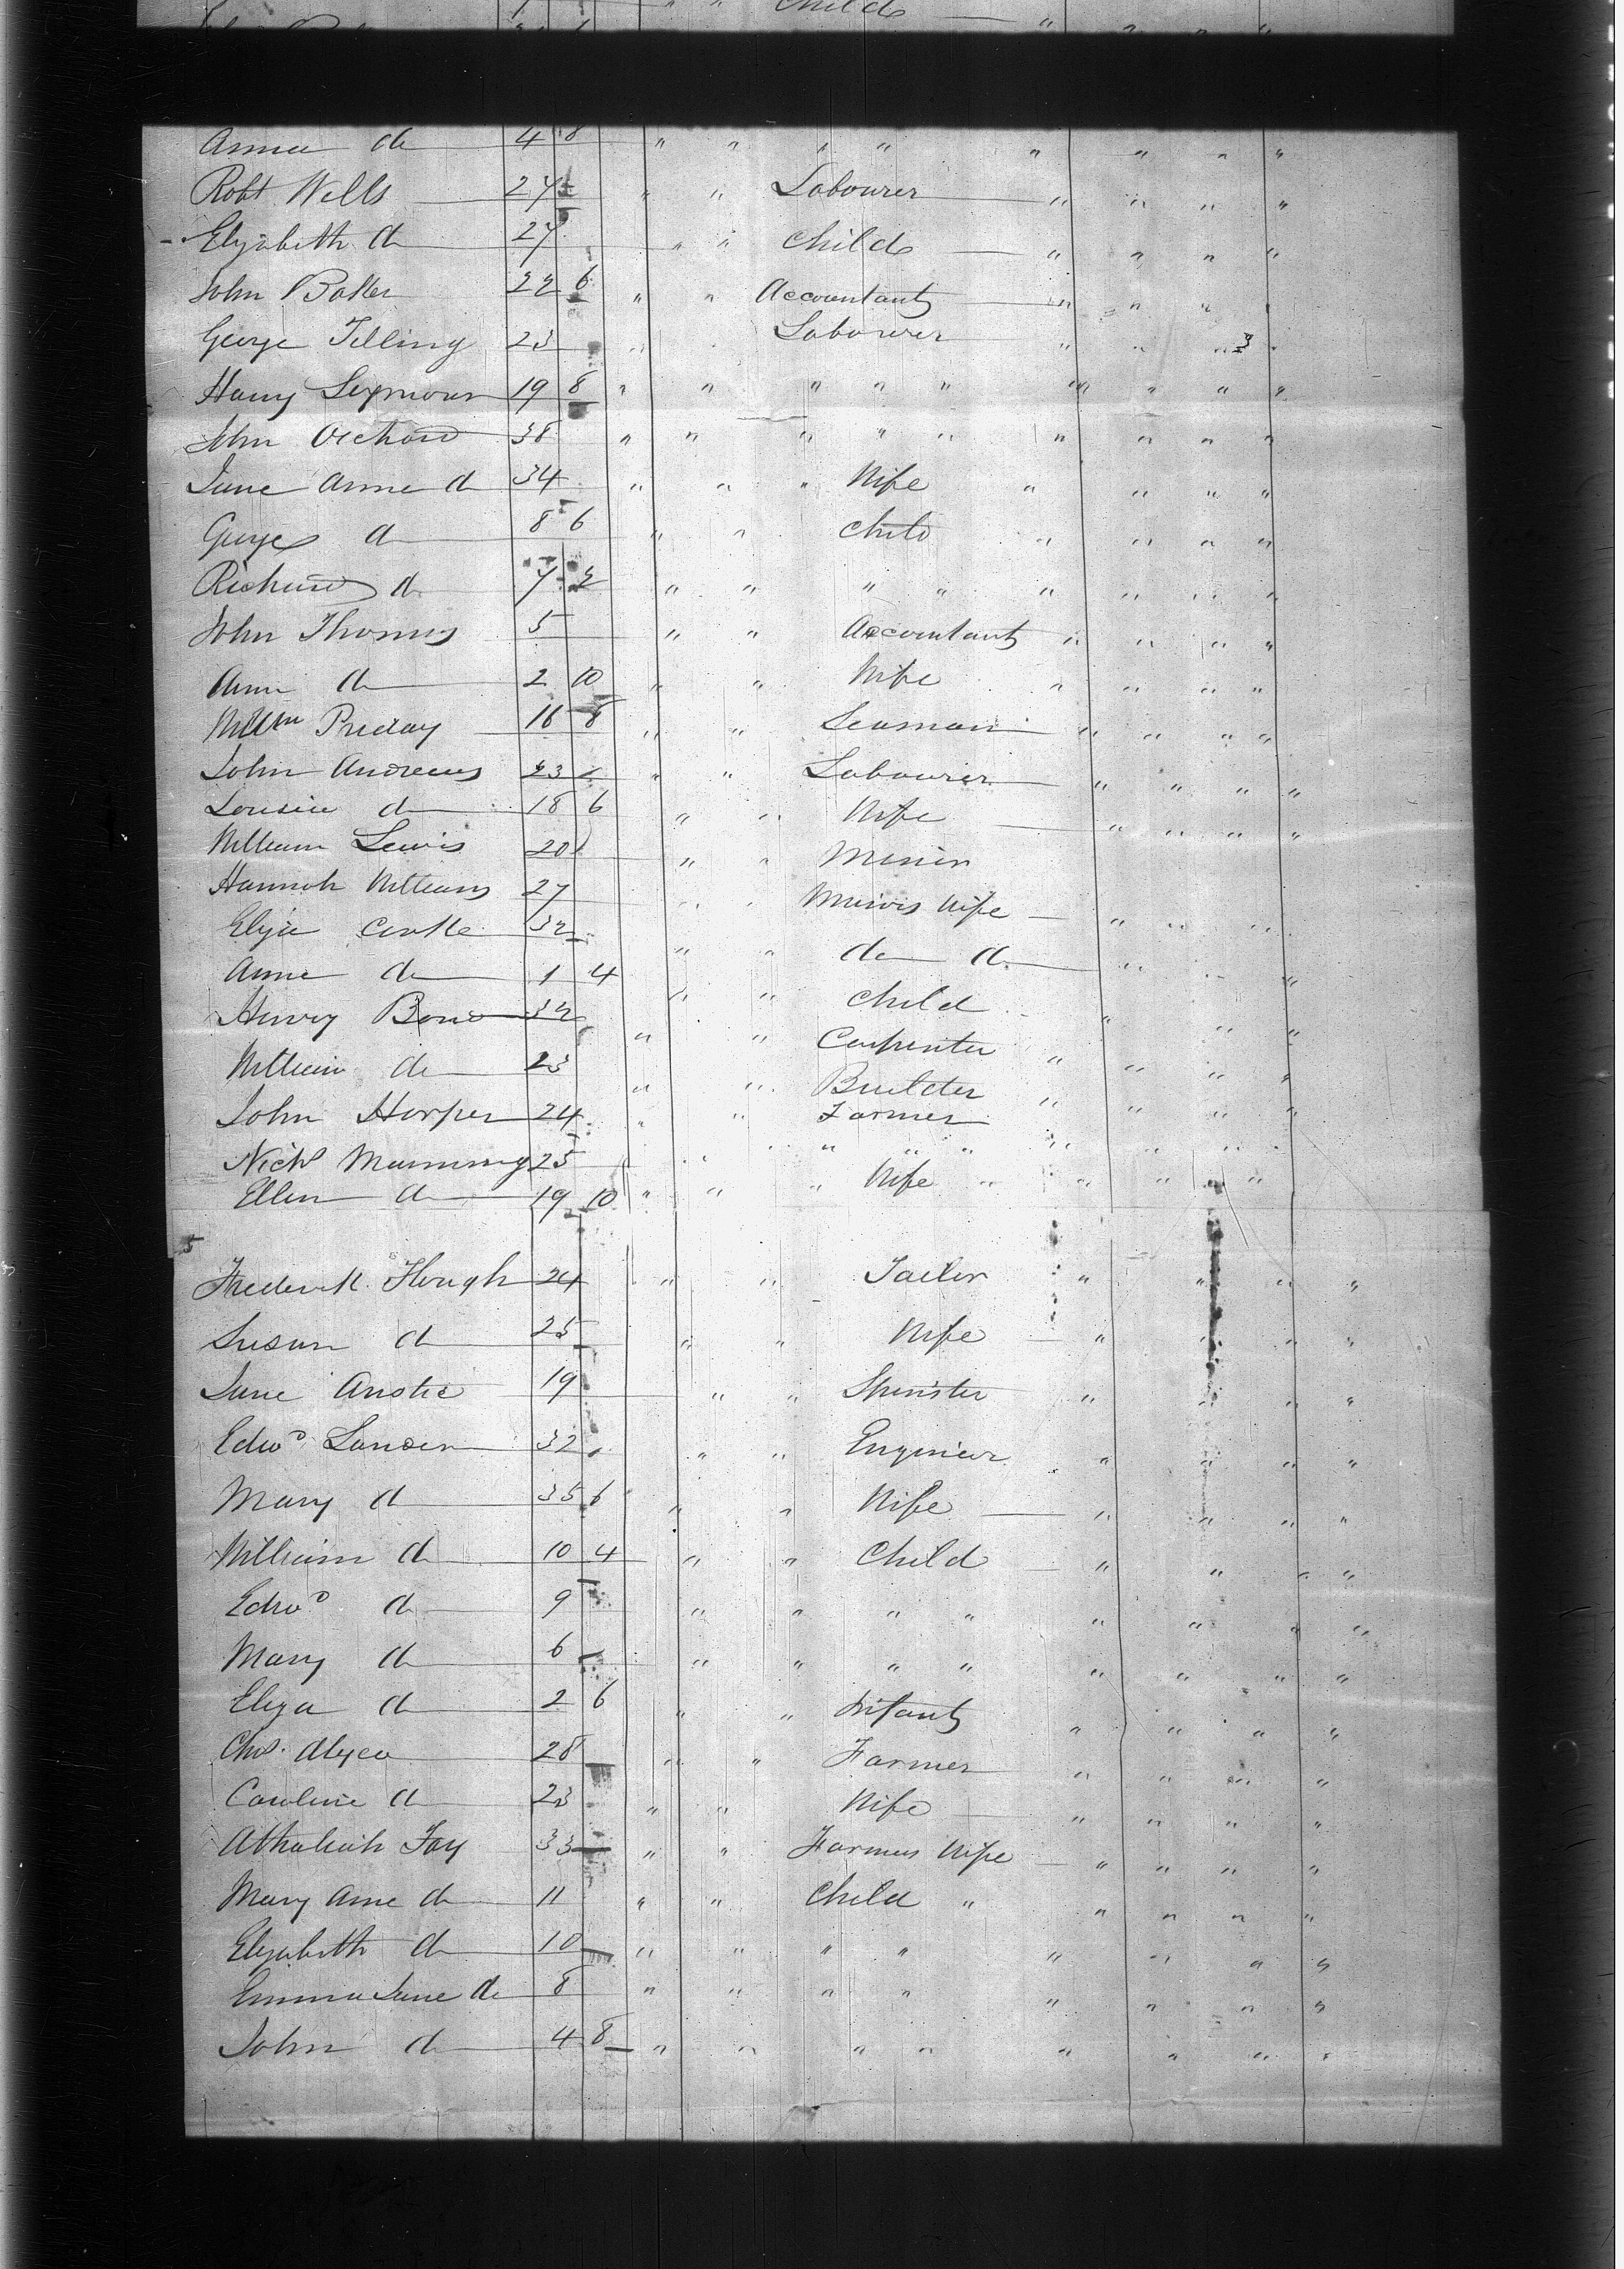 Child "
Anna do 4 8 " " " " " " " "
Robt Wells 27 " " Labourer " " " "
Elizabeth do 27 " " Child " " " "
John Baller 22 6 " " Accountant " " " "
George Telling 23 " Labourer " " "
Harry Seymour 19 8 " " " " " " " " "
John Orchard 38 " " " " " " " " "
Jane Anne do 34 " " " Wife " " " "
George do 8 6 " " Child " " " "
Richard do 7 2 " " " " " " " "
John Thomas 5 " " Accountant " " " "
Ann do 2 10 " " Wife " " " "
Willm Preday 16 8 " " Seaman " " " "
John Andrews 23 " " Labourer " " " "
Louisa do 18 6 " " Wife " " " "
William Lewis 20 " " Miner
Hannah Williams 27 " " Miners Wife " " "
Eliza Cooke 32 " " do do " " "
Anne do 1 4 " " Child " " "
Henry Bond 32 " " Carpenter " " " "
William do 23 " " Builder " " " "
John Harper 24 " " Farmer
Nichs Manning 25 " " " " " " " "
Ellen do 19 10 " " " Wife " " " " "
5
Frederick Hough 24 " " Tailor " " " "
Susan do 25 " " Wife " " " "
Jane Anstie 19 " " Spinster " " " "
Edwd Lander 32 " " Engineer " " " "
Mary do 35 6 " " Wife " " " "
William do 10 4 " " Child " " " "
Edwd do 9 " " " " " " " "
Mary do 6 " " " " " " " "
Eliza do 2 6 " " Infant " " " "
Chs. 28 " " Farmer " " " "
Caroline do 23 " " Wife " " " "
Athaliah Fay 33 " " Farmers Wife " " " "
Mary Anne do 11 " " Child " " " " "
Elizabeth do 10 " " " " " " " "
Emma Jane do 8 " " " " " " " "
John do 4 8 " " " " " " " "